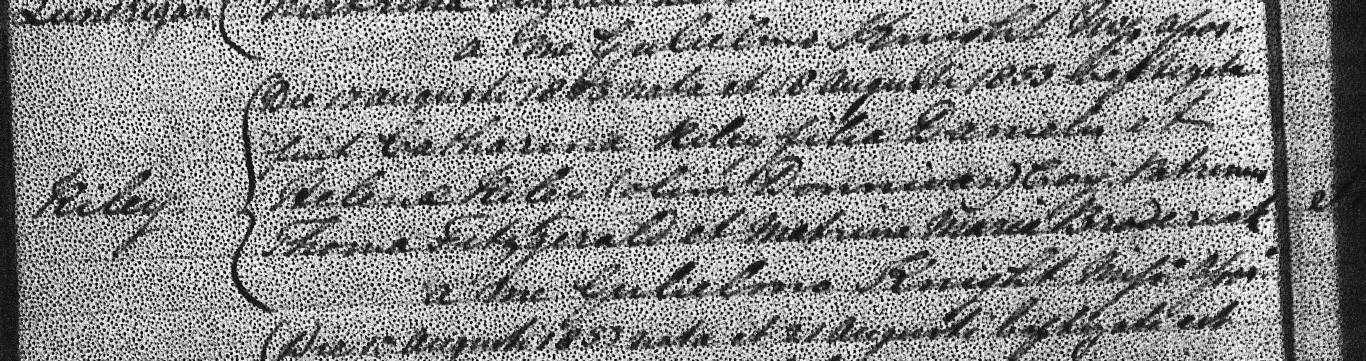 a me Gulielmo Knight Miss. Apos.
Die 10 Augusti 1853 nata et 18 Augusti 1853 baptizata
fuit Catharina Riley filia Danielis et
Riley Helena Riley (olim Donnivan) Conj. Patrinus
Thoma Fitzgerald et Matrina Maria Broderick
a me Gulielmo Knight Miss. Apos.
Die Augusti 1853 nata et 21 Augusti baptizata est